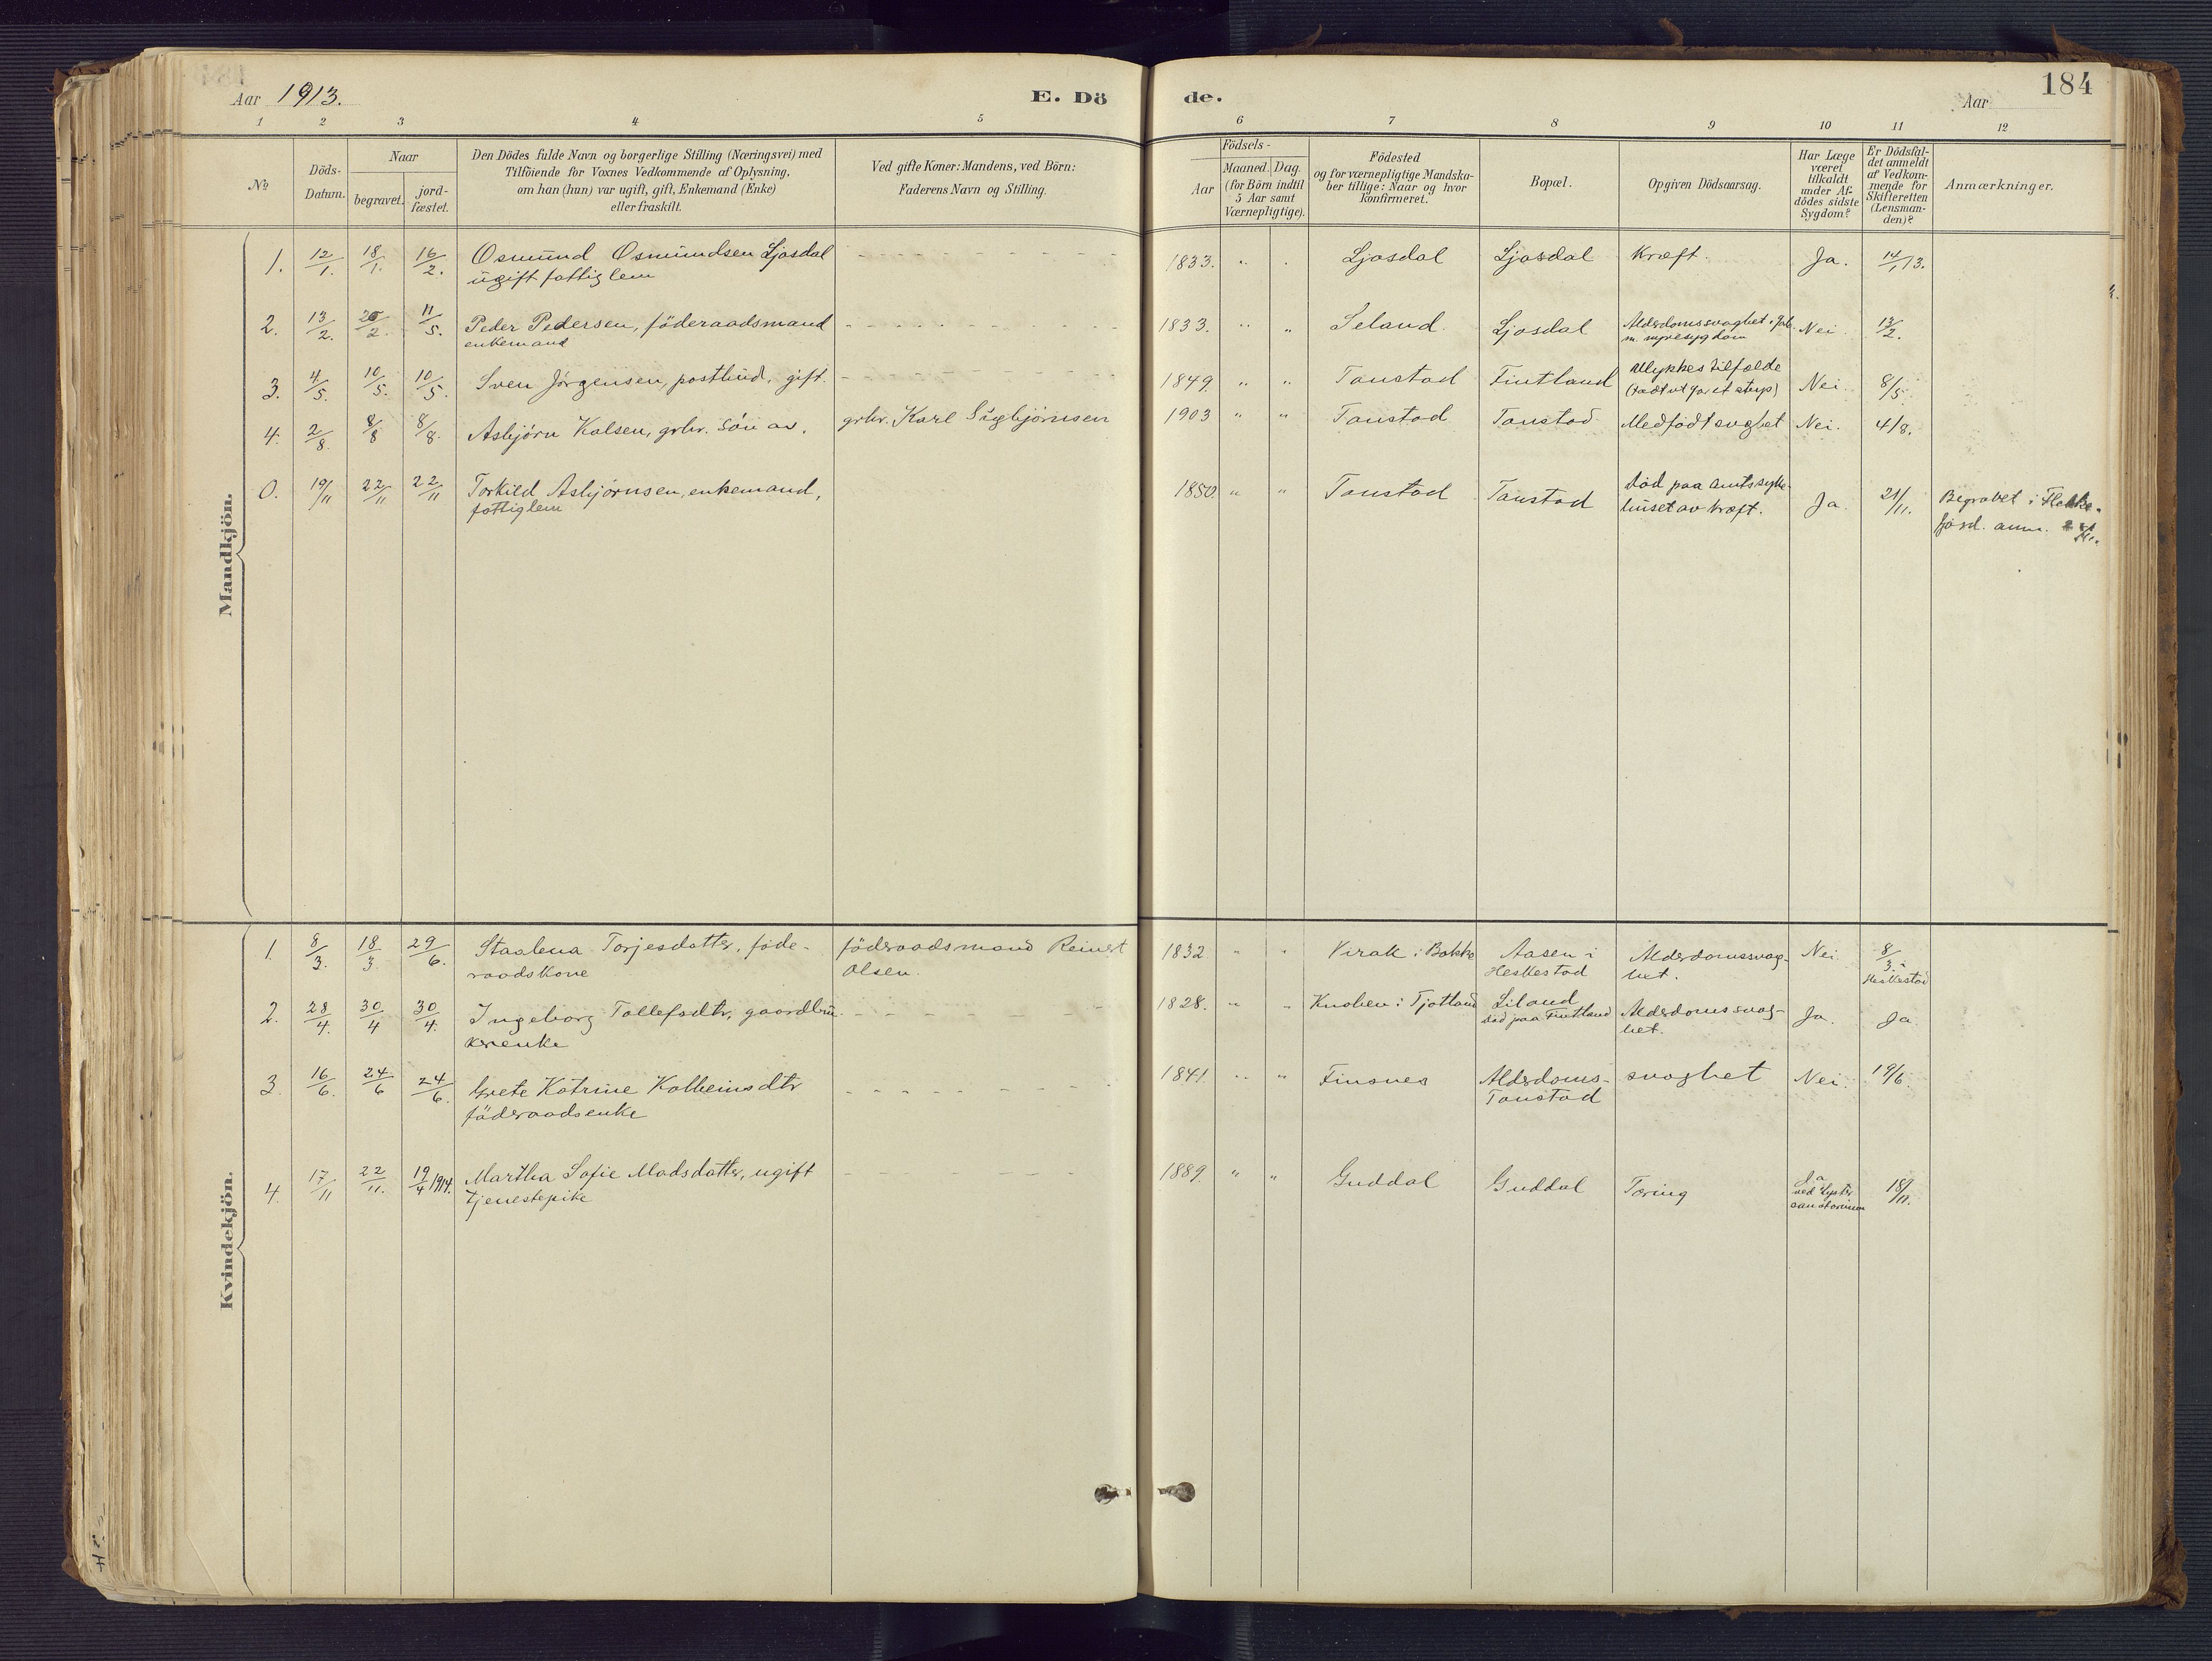 184
Aar 1913.
E. Dö
de.
Aar
1 2 3 4 5
6 7 8 9 10 11 12
No
Döds-
Datum.
Naar
begravet.
jord-
fæstet.
Den Dödes fulde Navn og borgerlige Stilling (Næringsvei) med
Tilföiende for Voxnes Vedkommende af Oplysning,
om han (hun) var ugift, gift, Enkemand (Enke)
eller fraskilt.
Ved gifte Koner: Mandens, ved Börn:
Faderens Navn og Stilling.
Födsels-
Aar
Maaned. Dag.
(for Börn indtil
5 Aar samt
Værnepligtige).
Födested
og for værnepligtige Mandska-
ber tillige: Naar og hvor
konfirmeret.
Bopæl.
Opgiven Dödsaarsag.
Har Læge
været
tilkaldt
under Af-
dödes sidste
Sygdom?
Er Dödsfal-
det anmeldt
af Vedkom-
mende for
Skifteretten
(Lensman-
den)?
Anmærkninger.
Mandkjön.
1. 12/1. 18/1. 16/2. Osmund Osmundsen Ljosdal 1833. " . Ljosdal Ljosdal Kræft. Ja. 14/1 13.
ugift fattiglem
2. 13/2. 2/2. 11/5. Peder Pedersen, föderaadsmand 1833. " " Seland. Ljosdal Alderdomssvaghet i Nei. 13/2.
enkemand
3. 4/5. 10/5. 10/5. Sven Jörgensen, postbud, gift. 1849. " " Tonstad Fintland Ulykkestilfælde Nei 8/5.
(radt ut for et stup)
4. 2/8. 8/8 8/8. Asbjörn Kalsen, grbr. sön av. grbr. Karl Sigbjörnsen 1903 " " Tonstad Tonstad Medfödt svaghet Nei. 4/8.
0. 19/11 22/11 22/11 Torkild Asbjörnsen, enkemand, 1850. " " Tonstad Tonstad Död paa amtssyke- Ja. 21/11. Begravet i Flekke-
fattiglem
huset av kræft.
fjord. anm.
Kvindekjön.
1. 8/3. 18/3 29/6. Staalena Torjesdatter, føde- föderaadsmand Reinert 1832 " " Virak i Bakke Aasen i Alderdomssvag- Nei. 8/3 i
raadskone Olsen. Heskestad het. Heskestad
2. 28/4. 30/4 30/4. Ingeborg Tollefsdtr, gaardbru- 1828. " " Knaben i Tjotland Liland Alderdomssvag- Ja. Ja
kerenke död paa Fintland het.
3. 16/6. 24/6 24/6. Grete Katrine Kolbeinsdtr 1841. " " Finsnes Alderdoms- svaghet Nei. 19/6.
föderaadsenke Tonstad
4. 17/11 22/11. 19/4 1914. Martha Sofie Madsdatter, ugift 1889. " " Guddal Guddal Tæring Ja 18/11.
tjenestepike
ved Lyster
sanatorium